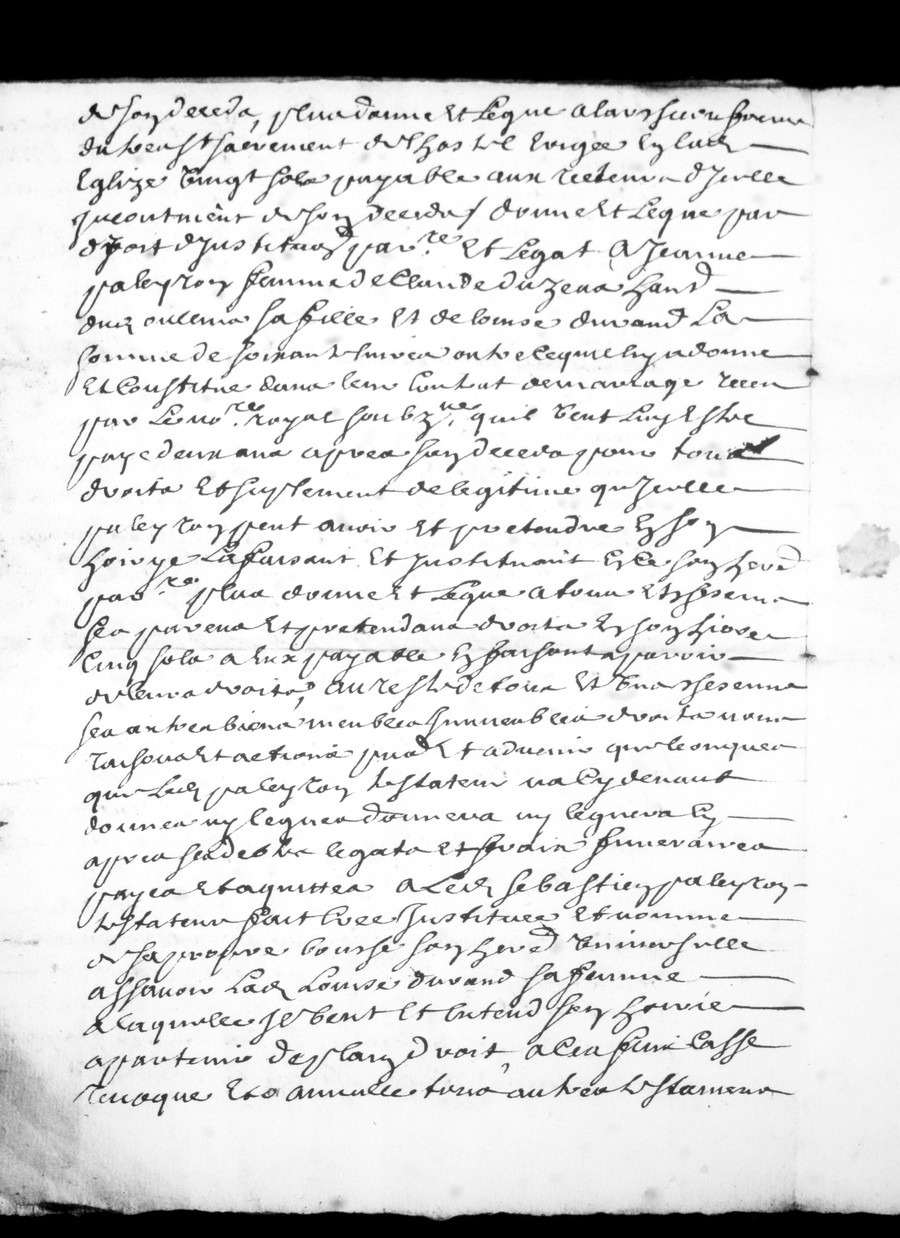 de son deceds, plus donne et legue a la confrerie
du tres st sacrement de l'hostel erigee en lad
Eglize vingt solz payable aux recteurs d'icelle
incontinent de son deceds / donne et legue par
droit d'institution par.re et legat a Jeanne
paleyron femme de Claude du
sa fille et de louise durand la
somme de soixante livres outre ce que luy a donne
et constitue dans leur contrat de mariage receu
par le no.re royal soubz.ne, qu'il veut luy estre
paye deux ans apres son deceds pour tous
droits et suplement de legitime qu'icelle
paleyron peut avoir et pretendre en son
hoirye la faisant et instituant en ce son hered
par.re plus donne et legue a tous et
ses parens et pretendans droits en son hoirie
cinq solz a eux payable en faisant aparoir
de leurs droits, au reste de tous et uns chescuns
ses autres biens meubles immeubles droits noms
raisons et actions pnd et advenir quelconques
que led paleyron testateur na cy devant
donnes ny legues donnera ny leguera cy
apres ses debtes legats et fraix funeraires
payes et aquittes a led sebastien paleyron
testateur fait cree institue et nomme
de sa propre bouche son hered universelle
assavoir lad Louise durand sa femme
a laquelle il veut et entend son hoirie
apartenir de plain droit, a ces fins casse
revoque et annulle tous autres testamens